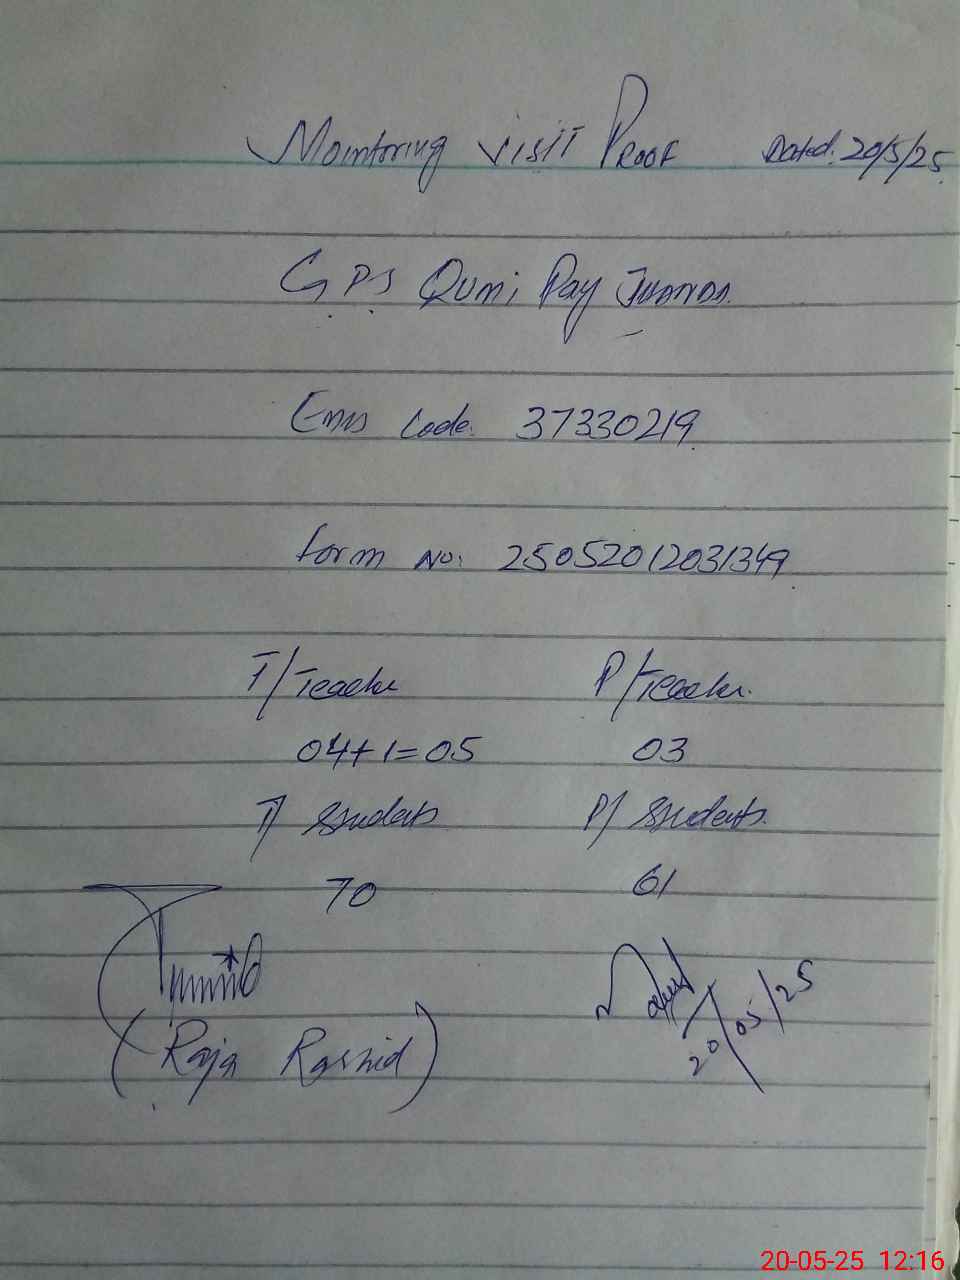 Monitoring visit Proof Dated: 20/5/25
GPS Qumi Pay
Emis Code: 37330219
Form No: 25052012031349
T/Teacher P/Teacher.
04+1=05 03
T/ Students P/ Students.
70 61
20/05/25
(Raja Rashid)
20-05-25 12:16